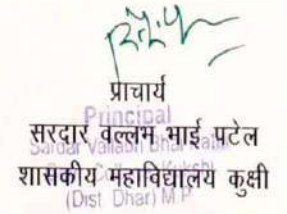 प्राचार्य
Principal
सरदार वल्लभ भाई पटेल
Sardar Vallabh Bhai Patel
शासकीय महाविद्यालय कुक्षी
(Dist Dhar) M.P